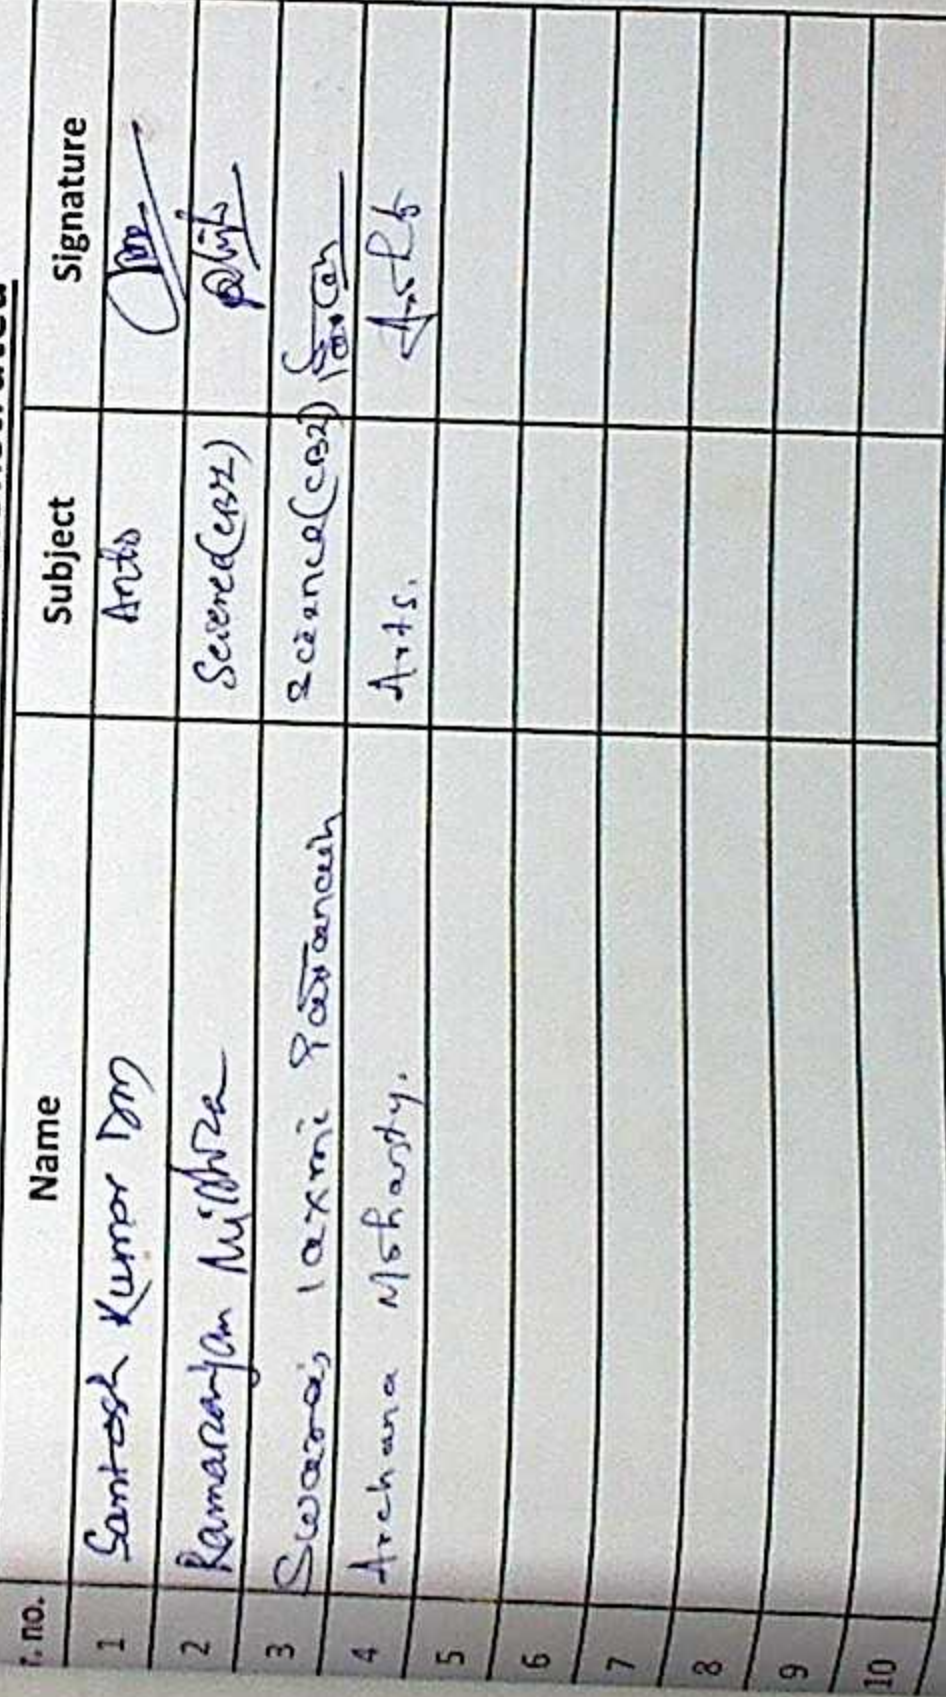 r. no. Name Subject Signature
1 Santosh Kumar Das Arts
2 Ramaranjan Mishra Science(CBZ)
3 Swarna laxmi Science(CBZ)
4 Archana Mohanty. Arts.
5
6
7
8
9
10